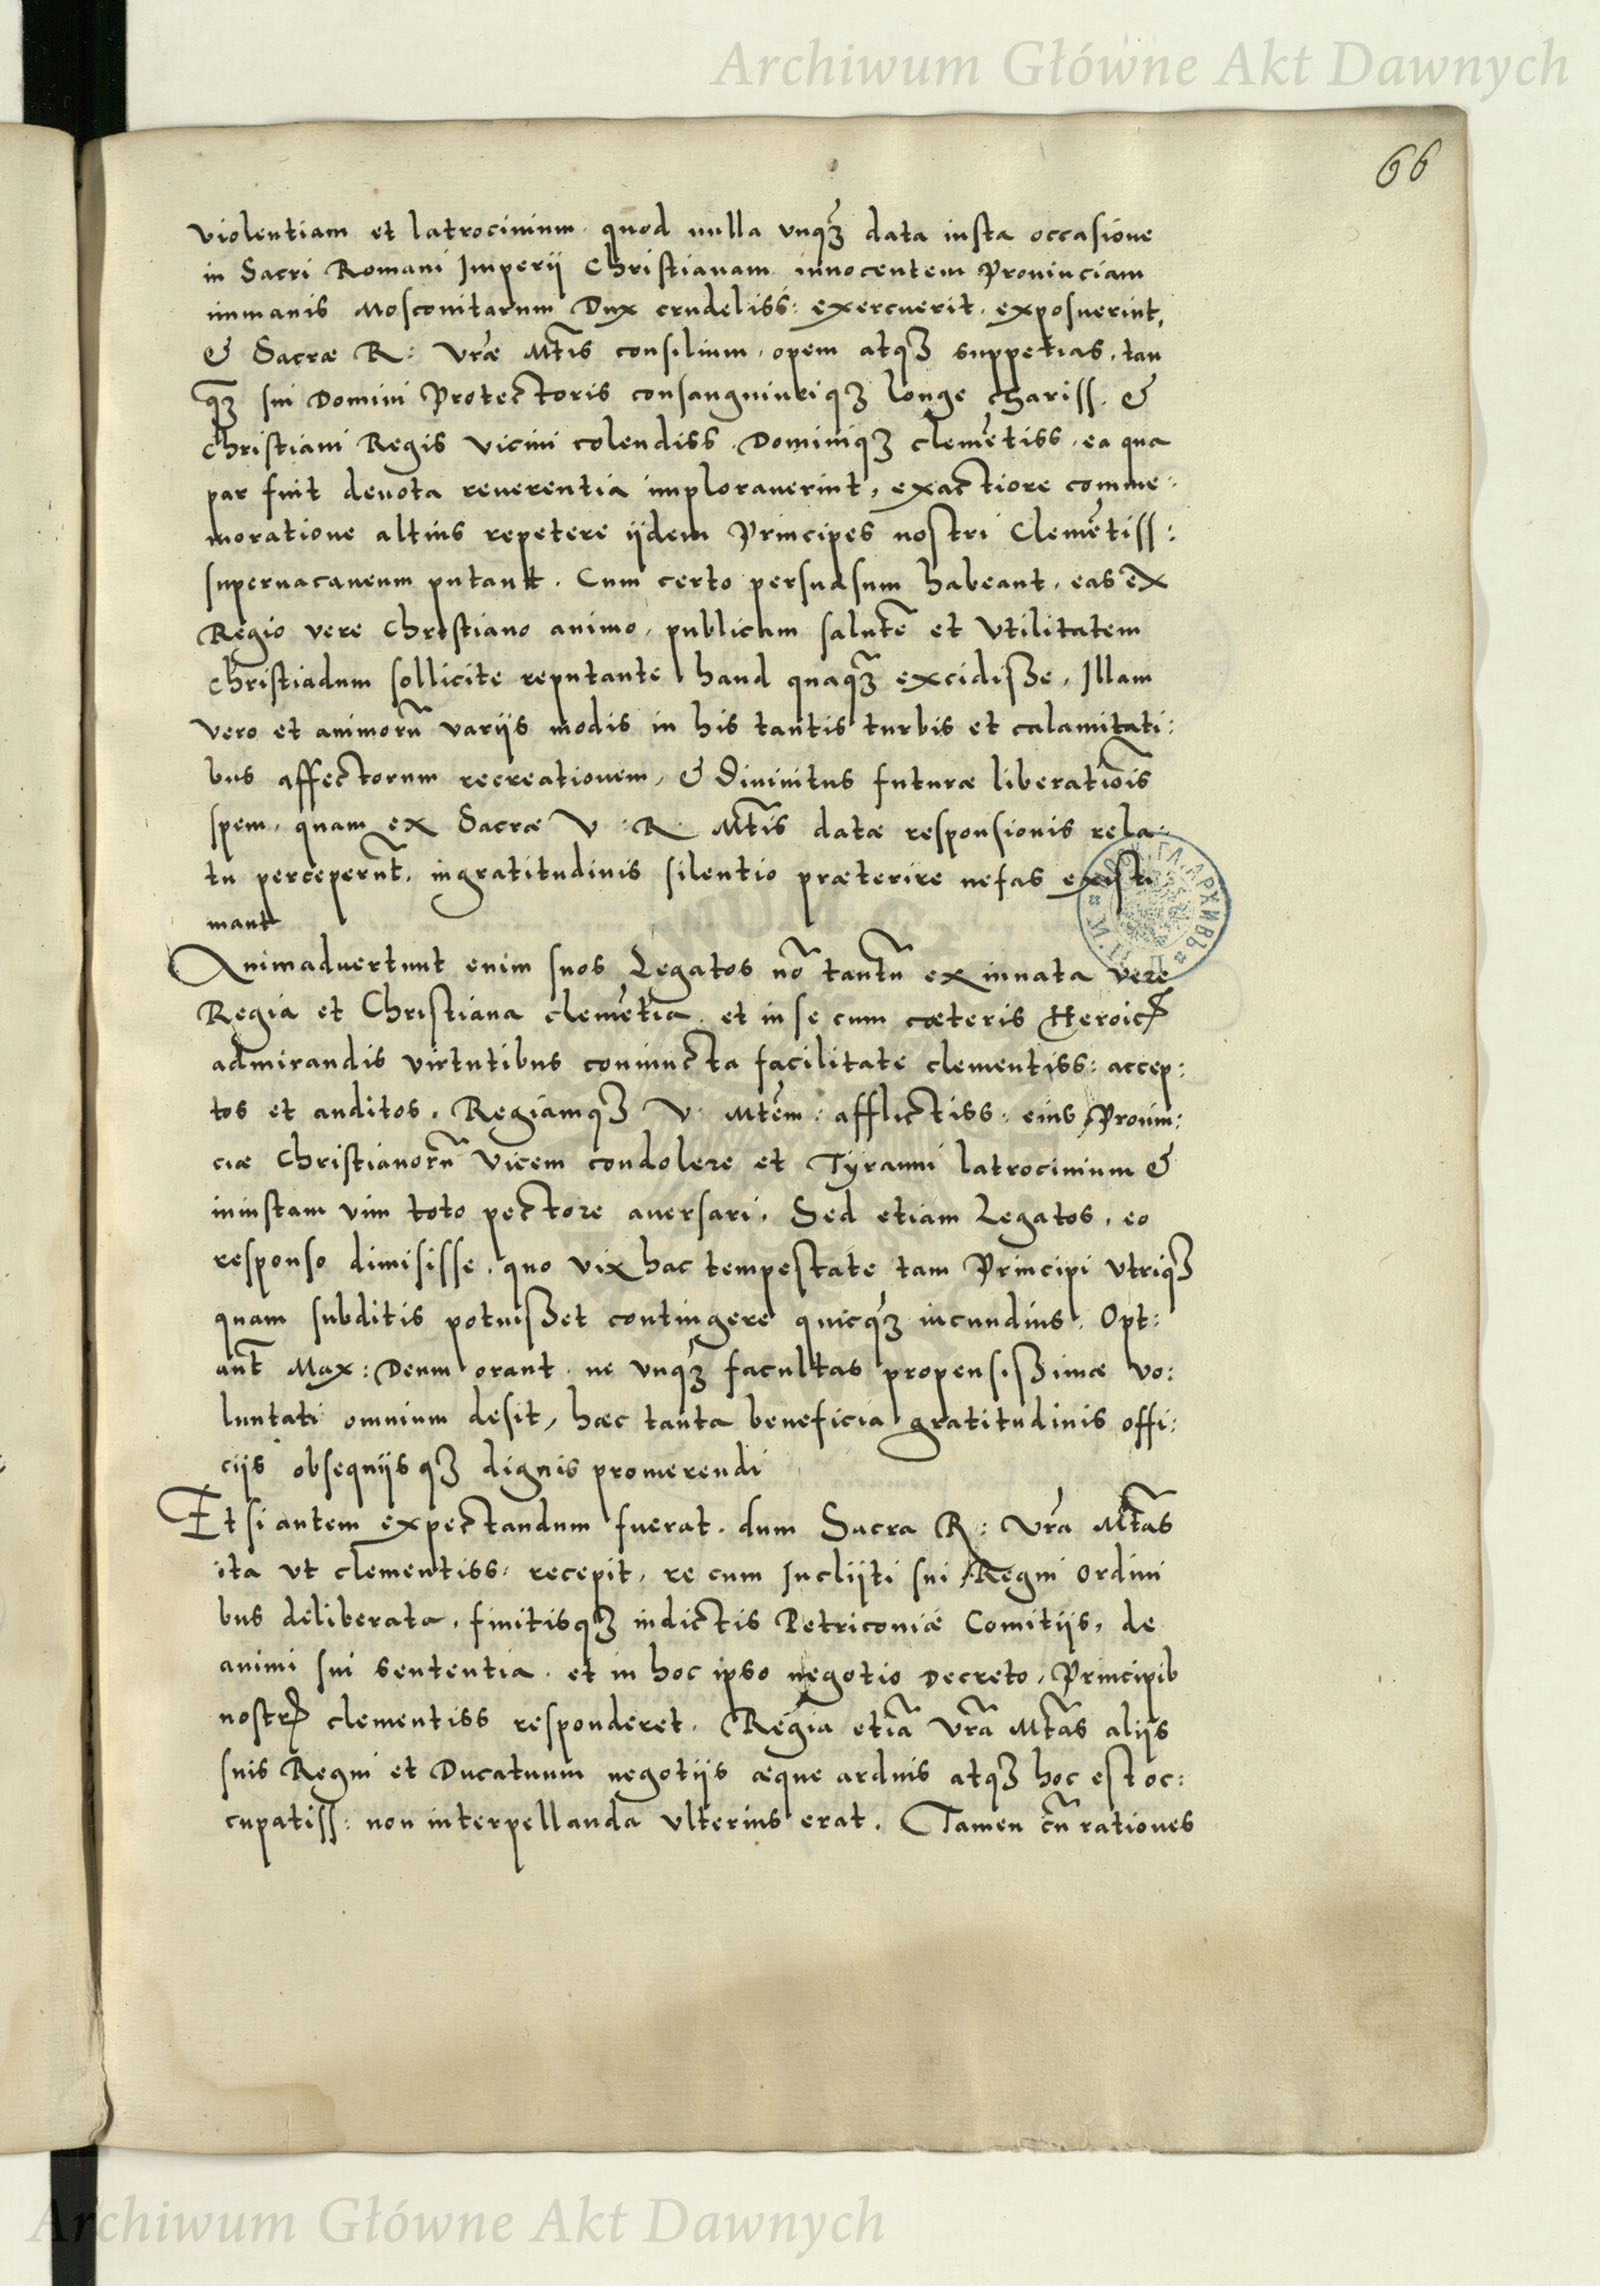 Archiwum Główne Akt Dawnych
66
violentiam et latrocinium, quod nulla vnqȝ data iusta occasione
in Sacri Romani Imperii Christianam innocentem Prouinciam
immanis Moscouitarum Dux crudeliss: exercuerit, exposuerint,
& Sacræ R: Vræ Mtis consilium, opem atqȝ suppetias, tan
qȝ sui Domini Protectoris consanguineiqȝ longe chariss. &
Christiani Regis vicini colendiss. Dominiqȝ clemētiss. ea qua
par fuit deuota reuerentia implorauerint, exactiore comme:
moratione altius repetere iidem Principes nostri Clemētiss:
superuacaneum putant. Cum certo persuasum habeant, eas ex
Regio vere Christiano animo, publicam salutē et vtilitatem
Christiadum sollicite reputante haud quaqȝ excidisse. Illam
vero et animorū variis modis in his tantis turbis et calamitati:
bus affectorum recreationem, & diuinitus futuræ liberatiōis
spem, quam ex Sacræ V: R: Mtis datæ responsionis rela:
tu perceperūt, ingratitudinis silentio præterire nefas existi
mant
Animaduertunt enim suos Legatos nō tantū ex innata vere
Regia et Christiana clemētia, et in se cum cæteris Heroicꝭ
admirandis virtutibus coniuncta facilitate clementiss: accep:
tos et auditos, Regiamqȝ V: Mtēm: afflictiss: eius Prouin:
ciæ Christianorū vicem condolere et Tyranni latrocinium &
iniustam vim toto pectore auersari. Sed etiam Legatos, eo
responso dimisisse, quo vix hac tempestate tam Principi vtriqȝ
quam subditis potuisset contingere quicqȝ iucundius. Opt:
ant Max: Deum orant, ne vnqȝ facultas propensissimæ vo:
luntati omnium desit, hæc tanta beneficia gratitudinis offi:
ciis obsequiisqȝ dignis promerendi
Et si autem expectandum fuerat, dum Sacra R: Vrā Mtās
ita vt clementiss: recepit, re cum Incliiti sui Regni ordini
bus deliberata, finitisqȝ indictis Petricouiæ Comitiis, de
animi sui sententia, et in hoc ipso negotio Decreto, Principib
nostrꝭ clementiss responderet, Regia etiā Vrā Mtās aliis
suis Regni et Ducatuum negotiis æque arduis atqȝ hoc est oc:
cupatiss: non interpellanda vlterius erat. Tamen cū rationes
Archiwum Główne Akt Dawnych